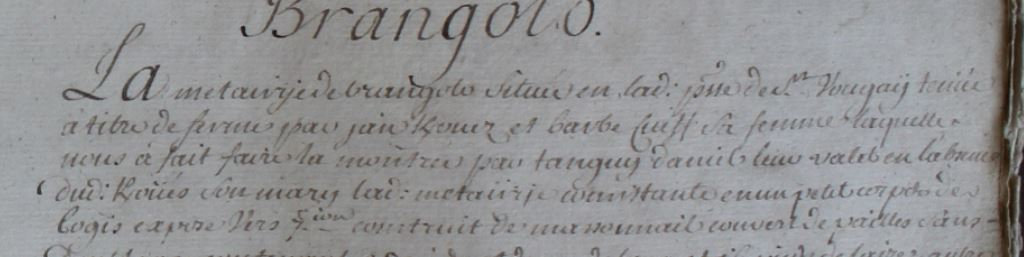 Brangolo.
La metairije de brangolo située en lad: psse de St Vougay tenüe
à titre de ferme par jan et barbe Cueff sa femme laquelle
nous à fait faire la montrée par tanguy daniel leur valet en
dud: son mary lad: metairije consistante en un petit corps de
logis exposé vers construit de massonnail couvert de pailles dans